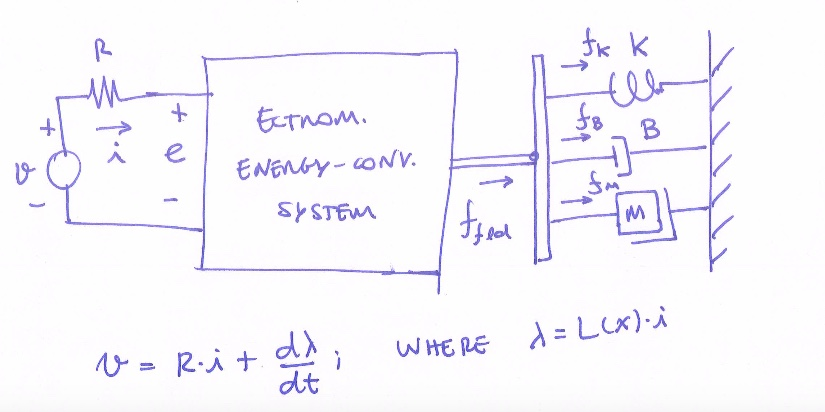 R
f_K K
+
i
+
e
-
v
-
ECTROM.
ENERGY-CONV.
SYSTEM
f_fld
f_B B
f_M
M
v = R·i + dλ/dt ; WHERE λ = L(x)·i